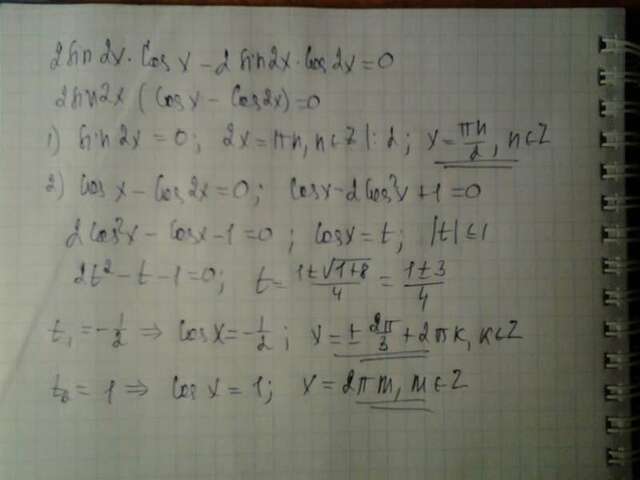 2sin2x·cosx-2sin2x·cos2x=0
2sin2x(cosx-cos2x)=0
1) sin2x=0; 2x=πn, n∈Z |:2; x=πn/2, n∈Z
2) cosx-cos2x=0; cosx-2cos²x+1=0
2cos²x-cosx-1=0; cosx=t; |t|≤1
2t²-t-1=0; t=(1±√1+8)/4=(1±3)/4
t₁=-1/2 ⇒ cosx=-1/2; x=±2π/3+2πk, k∈Z
t₂=1 ⇒ cosx=1; x=2πm, m∈Z